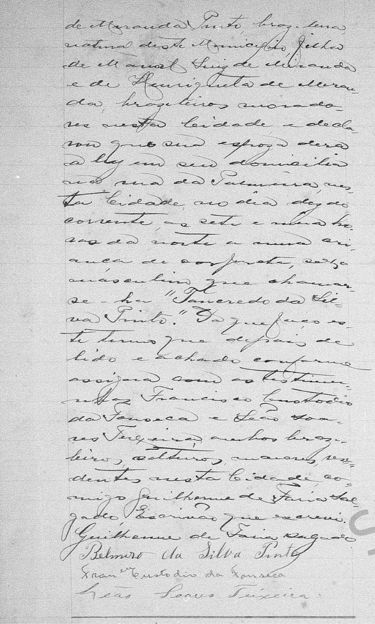 de Miranda Pinto, brazileira
natural deste Municipio, filha
de Manoel Luiz de Miranda
e de Henriqueta de Miran-
da, brazileiros, morado-
res nesta Cidade e decla-
rou que sua esposa dera
a luz em seu domicilio
na rua da Palmeira, nes-
ta Cidade, no dia dezoito do
corrente, as sete e meia ho-
ras da noute a uma cri-
ança de cor parda, sexo
masculino, que chamar-
se-ha "Tancredo da Sil-
va Pinto." Do que faço es-
te termo que depois de
lido e achado conforme
assigna com as testimu-
nhas Francisco Custodio
da Fonseca e Leão Soa-
res Teixeira, ambos brazi-
leiros, solteiros, maiores, resi-
dentes nesta Cidade, co-
migo Guilherme de Faria Sal-
gado Escrivão que escrevi.
Guilherme de Faria Salgado
Belmiro da Silva Pinto
Fran.co Custodio da Fonseca
Leão Soares Teixeira